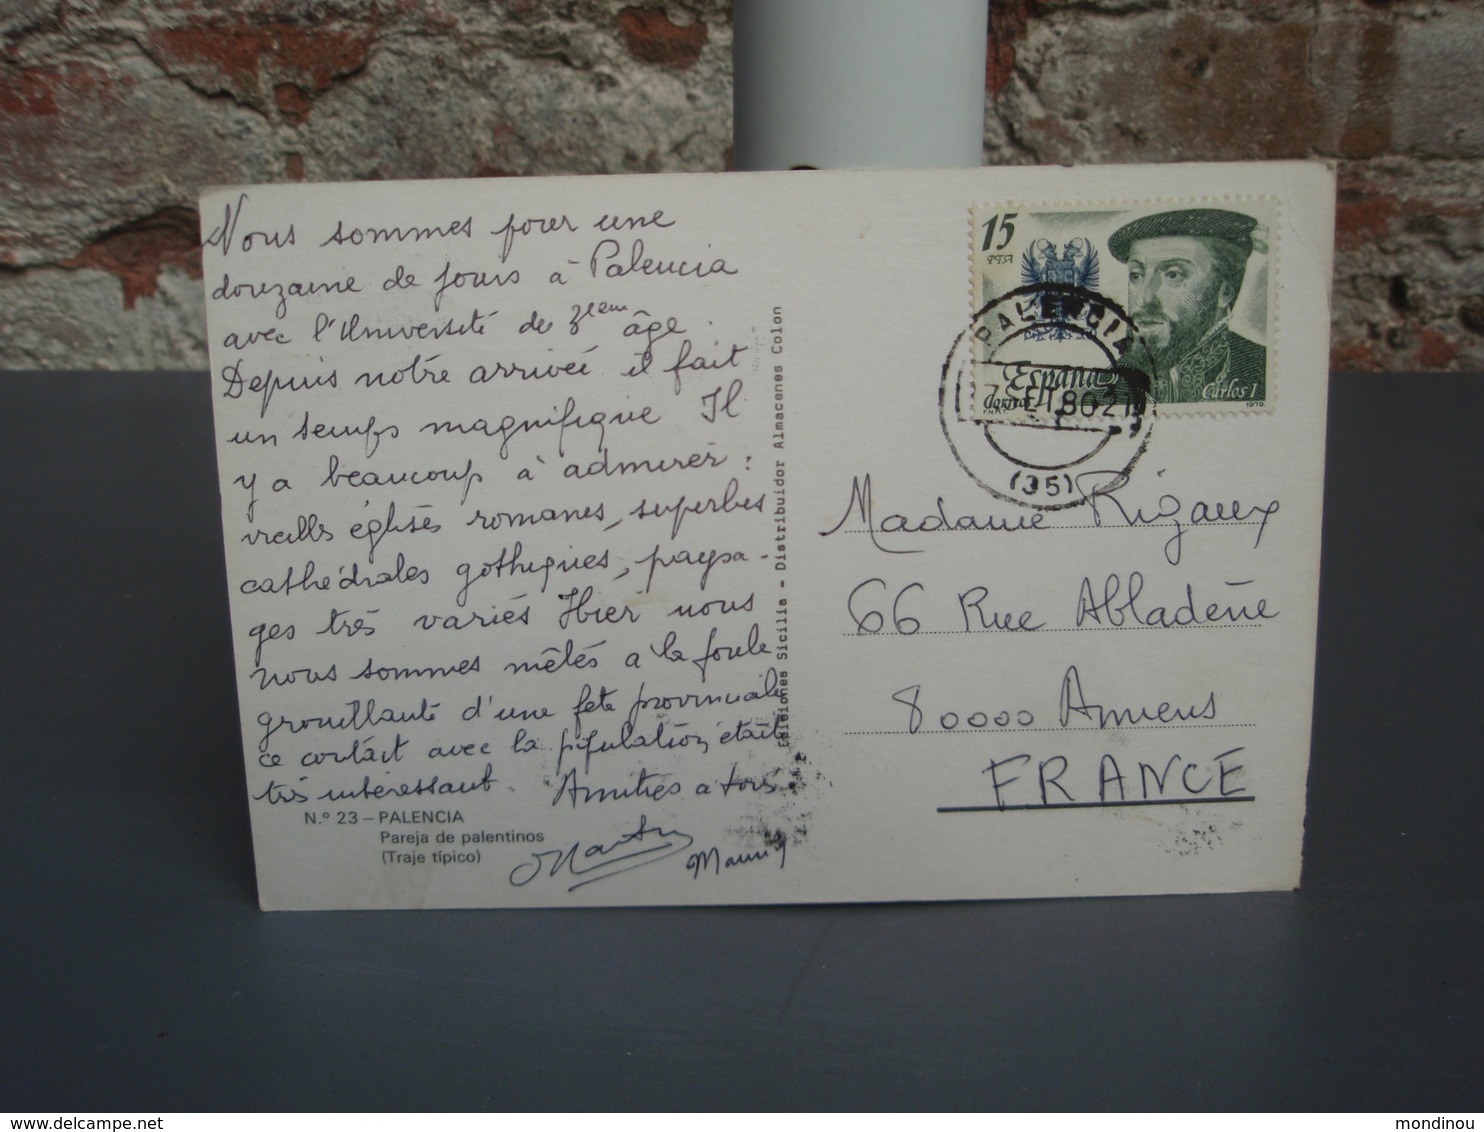 Nous sommes pour une
douzaine de jours à Palencia
avec l'Université de 3ieme âge.
Depuis notre arrivée il fait
un temps magnifique Il
y a beaucoup à admirer :
vieilles églises romanes, superbes
cathédrales gothiques, paysa-
ges très variés Hier nous
nous sommes mêlés à la foule
grouillante d'une fête provinciale
ce contact avec la population était
très intéressant. Amitiés à tous
N.º 23 – PALENCIA
Pareja de palentinos
(Traje típico)
Ediciones Sicilia - Distribuidor Almacenes Colon
15
PTA
España
correos
Carlos I
F.N.M.T.
1979
PALENCIA
SET 80 21
(35)
Madame Rigaux
66 Rue Abladène
80000 Amiens
FRANCE
www.delcampe.net
mondinou